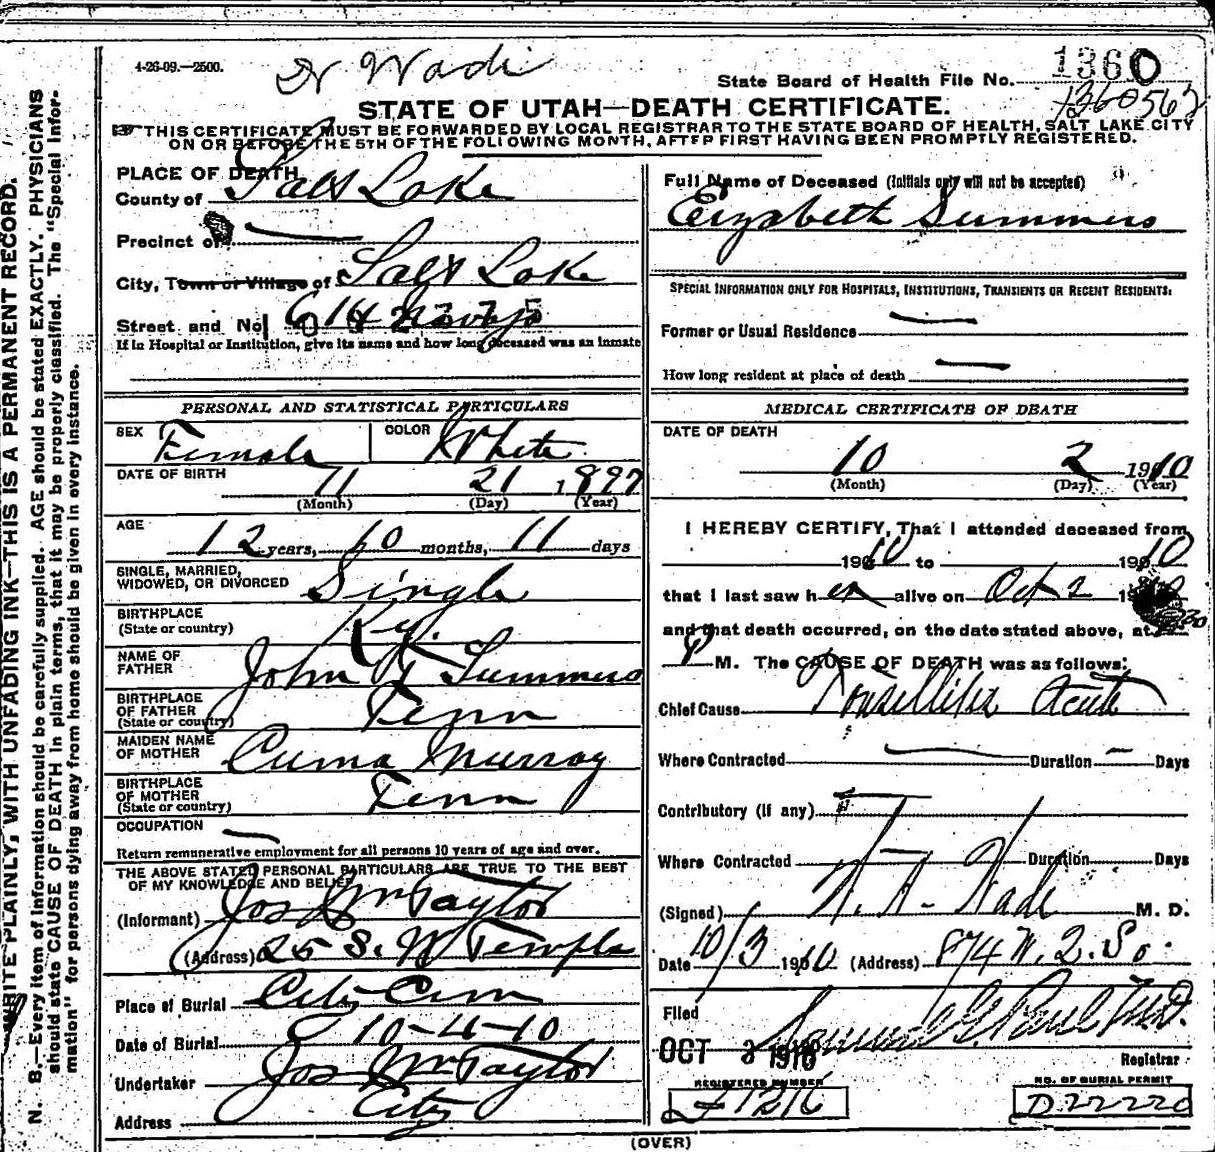 4-26-09.—2500.
State Board of Health File No. 1360
STATE OF UTAH—DEATH CERTIFICATE.
THIS CERTIFICATE MUST BE FORWARDED BY LOCAL REGISTRAR TO THE STATE BOARD OF HEALTH, SALT LAKE CITY
ON OR BEFORE THE 5TH OF THE FOLLOWING MONTH, AFTER FIRST HAVING BEEN PROMPTLY REGISTERED.
WRITE PLAINLY, WITH UNFADING INK—THIS IS A PERMANENT RECORD.
N. B.—Every item of information should be carefully supplied. AGE should be stated EXACTLY. PHYSICIANS
should state CAUSE OF DEATH in plain terms, that it may be properly classified. The "Special Infor-
mation" for persons dying away from home should be given in every instance.
PLACE OF DEATH
County of Salt Lake
Precinct of —
City, Town or Village of Salt Lake
Street and No.
If in Hospital or Institution, give its name and how long deceased was an inmate
PERSONAL AND STATISTICAL PARTICULARS
SEX Female COLOR White
DATE OF BIRTH 11 21 1897
(Month) (Day) (Year)
AGE 12 years, 10 months, 11 days
SINGLE, MARRIED,
WIDOWED, OR DIVORCED Single
BIRTHPLACE
(State or country) Ky.
NAME OF
FATHER John T Summers
BIRTHPLACE
OF FATHER
(State or country) Tenn
MAIDEN NAME
OF MOTHER Cuma Murray
BIRTHPLACE
OF MOTHER
(State or country) Tenn
OCCUPATION —
Return remunerative employment for all persons 10 years of age and over.
THE ABOVE STATED PERSONAL PARTICULARS ARE TRUE TO THE BEST
OF MY KNOWLEDGE AND BELIEF
(Informant) Jos Wm Taylor
(Address) 25 S. W Temple
Place of Burial City Cem
Date of Burial 10-4-10
Undertaker Jos Wm Taylor
Address City
Full Name of Deceased (Initials only will not be accepted)
Elizabeth Summers
SPECIAL INFORMATION ONLY FOR HOSPITALS, INSTITUTIONS, TRANSIENTS OR RECENT RESIDENTS:
Former or Usual Residence —
How long resident at place of death —
MEDICAL CERTIFICATE OF DEATH
DATE OF DEATH
10 2 1910
(Month) (Day) (Year)
I HEREBY CERTIFY, That I attended deceased from
1910 to 1910
that I last saw her alive on Oct 2
and that death occurred, on the date stated above, at
P M. The CAUSE OF DEATH was as follows:
Chief Cause Tonsillitis Acute
Where Contracted — Duration — Days
Contributory (if any)
Where Contracted — Duration Days
(Signed) Wade M. D.
Date 10/3 1910 (Address) 874 W. 2. So.
Filed
OCT 3 1910
Registrar
REGISTERED NUMBER
NO. OF BURIAL PERMIT
(OVER)